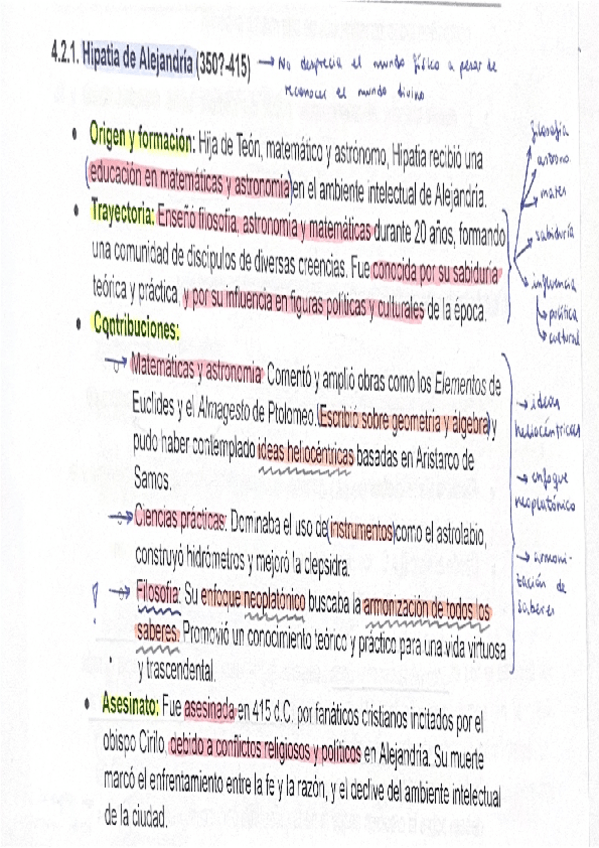 4.2.1. Hipatia de Alejandría (350?-415) → No desprecia el mundo físico a pesar de
reconocer el mundo divino
• Origen y formación: Hija de Teón, matemático y astrónomo, Hipatia recibió una
(educación en matemáticas y astronomía) en el ambiente intelectual de Alejandría.
• Trayectoria: Enseñó filosofía, astronomía y matemáticas durante 20 años, formando
una comunidad de discípulos de diversas creencias. Fue conocida por su sabiduría
teórica y práctica, y por su influencia en figuras políticas y culturales de la época.
filosofía
astrono.
mates
sabiduría
influencia
política
cultural
• Contribuciones:
→ Matemáticas y astronomía: Comentó y amplió obras como los Elementos de
Euclides y el Almagesto de Ptolomeo. (Escribió sobre geometría y álgebra) y
pudo haber contemplado ideas heliocéntricas basadas en Aristarco de
Samos.
→ Ciencias prácticas: Dominaba el uso de (instrumentos) como el astrolabio,
construyó hidrómetros y mejoró la clepsidra.
→ Filosofía: Su enfoque neoplatónico buscaba la armonización de todos los
saberes. Promovió un conocimiento teórico y práctico para una vida virtuosa
y trascendental.
→ ideas
heliocéntricas
→ enfoque
neoplatónico
→ armoni-
zación de
saberes
• Asesinato: Fue asesinada en 415 d.C. por fanáticos cristianos incitados por el
obispo Cirilo, debido a conflictos religiosos y políticos en Alejandría. Su muerte
marcó el enfrentamiento entre la fe y la razón, y el declive del ambiente intelectual
de la ciudad.